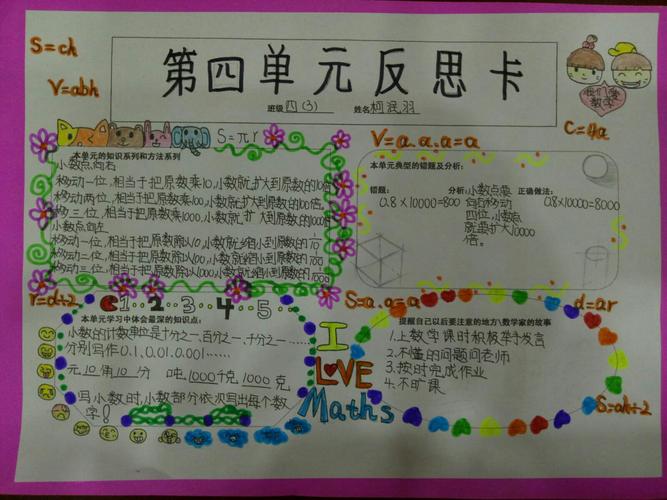 S=ch
V=abh
第四单元反思卡
班级 四(3) 姓名 柯润羽
我们爱数学
C=4a
S=πr
V=a.a.a=a
本单元的知识系列和方法系列
小数点向右
移动一位,相当于把原数乘10,小数就扩大到原数的10倍
移动两位,相当于把原数乘100,小数就扩大到原数的100倍.
移动三位,相当于把原数乘1000,小数就扩大到原数的1000倍
小数点向左
移动一位,相当于把原数除以10,小数就缩小到原数的1/10
移动二位,相当于把原数除以100,小数就缩小到原数的1/100
移动三位,相当于把原数除以1000,小数就缩小到原数的1/1000
本单元典型的错题及分析:
错题: 分析: 小数点要 正确做法:
0.8×10000=800 向右移动 0.8×10000=8000
四位,小数点
就要扩大10000
倍。
r=d÷2
1..2..3..4..5..
S=a.a=a
d=ar
本单元学习中体会最深的知识点:
小数的计数单位是十分之一、百分之一、千分之一……
分别写作0.1、0.01、0.001……
元10角10分 吨1000千克1000克
写小数时,小数部分依次写出每个数
字!
I
LOVE
Maths
提醒自己以后要注意的地方\数学家的故事
1.上数学课时积极举手发言
2.不懂的问题问老师
3.按时完成作业
4.不旷课
S=ah÷2